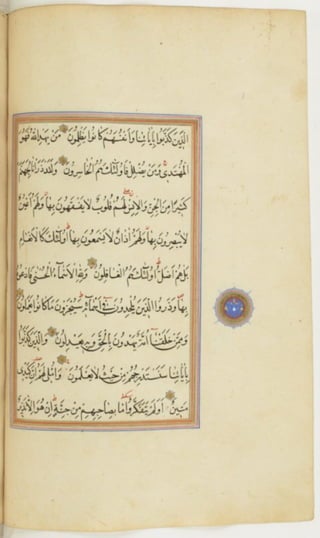 الذين كذبوا باياتنا وانفسهم كانوا يظلمون من يهد الله فهو
المهتدى ومن يضلل فاولئك هم الخاسرون ولقد ذرانا لجهنم
كثيرا من الجن والانس لهم قلوب لا يفقهون بها ولهم اعين
لا يبصرون بها ولهم اذان لا يسمعون بها اولئك كالانعام
بل هم اضل اولئك هم الغافلون ولله الاسماء الحسنى فادعوه
بها وذروا الذين يلحدون فى اسمائه سيجزون ما كانوا يعملون
وممن خلقنا امة يهدون بالحق وبه يعدلون والذين كذبوا
باياتنا سنستدرجهم من حيث لا يعلمون واملى لهم ان كيدى
متين اولم يتفكروا ما بصاحبهم من جنة ان هو الا نذير